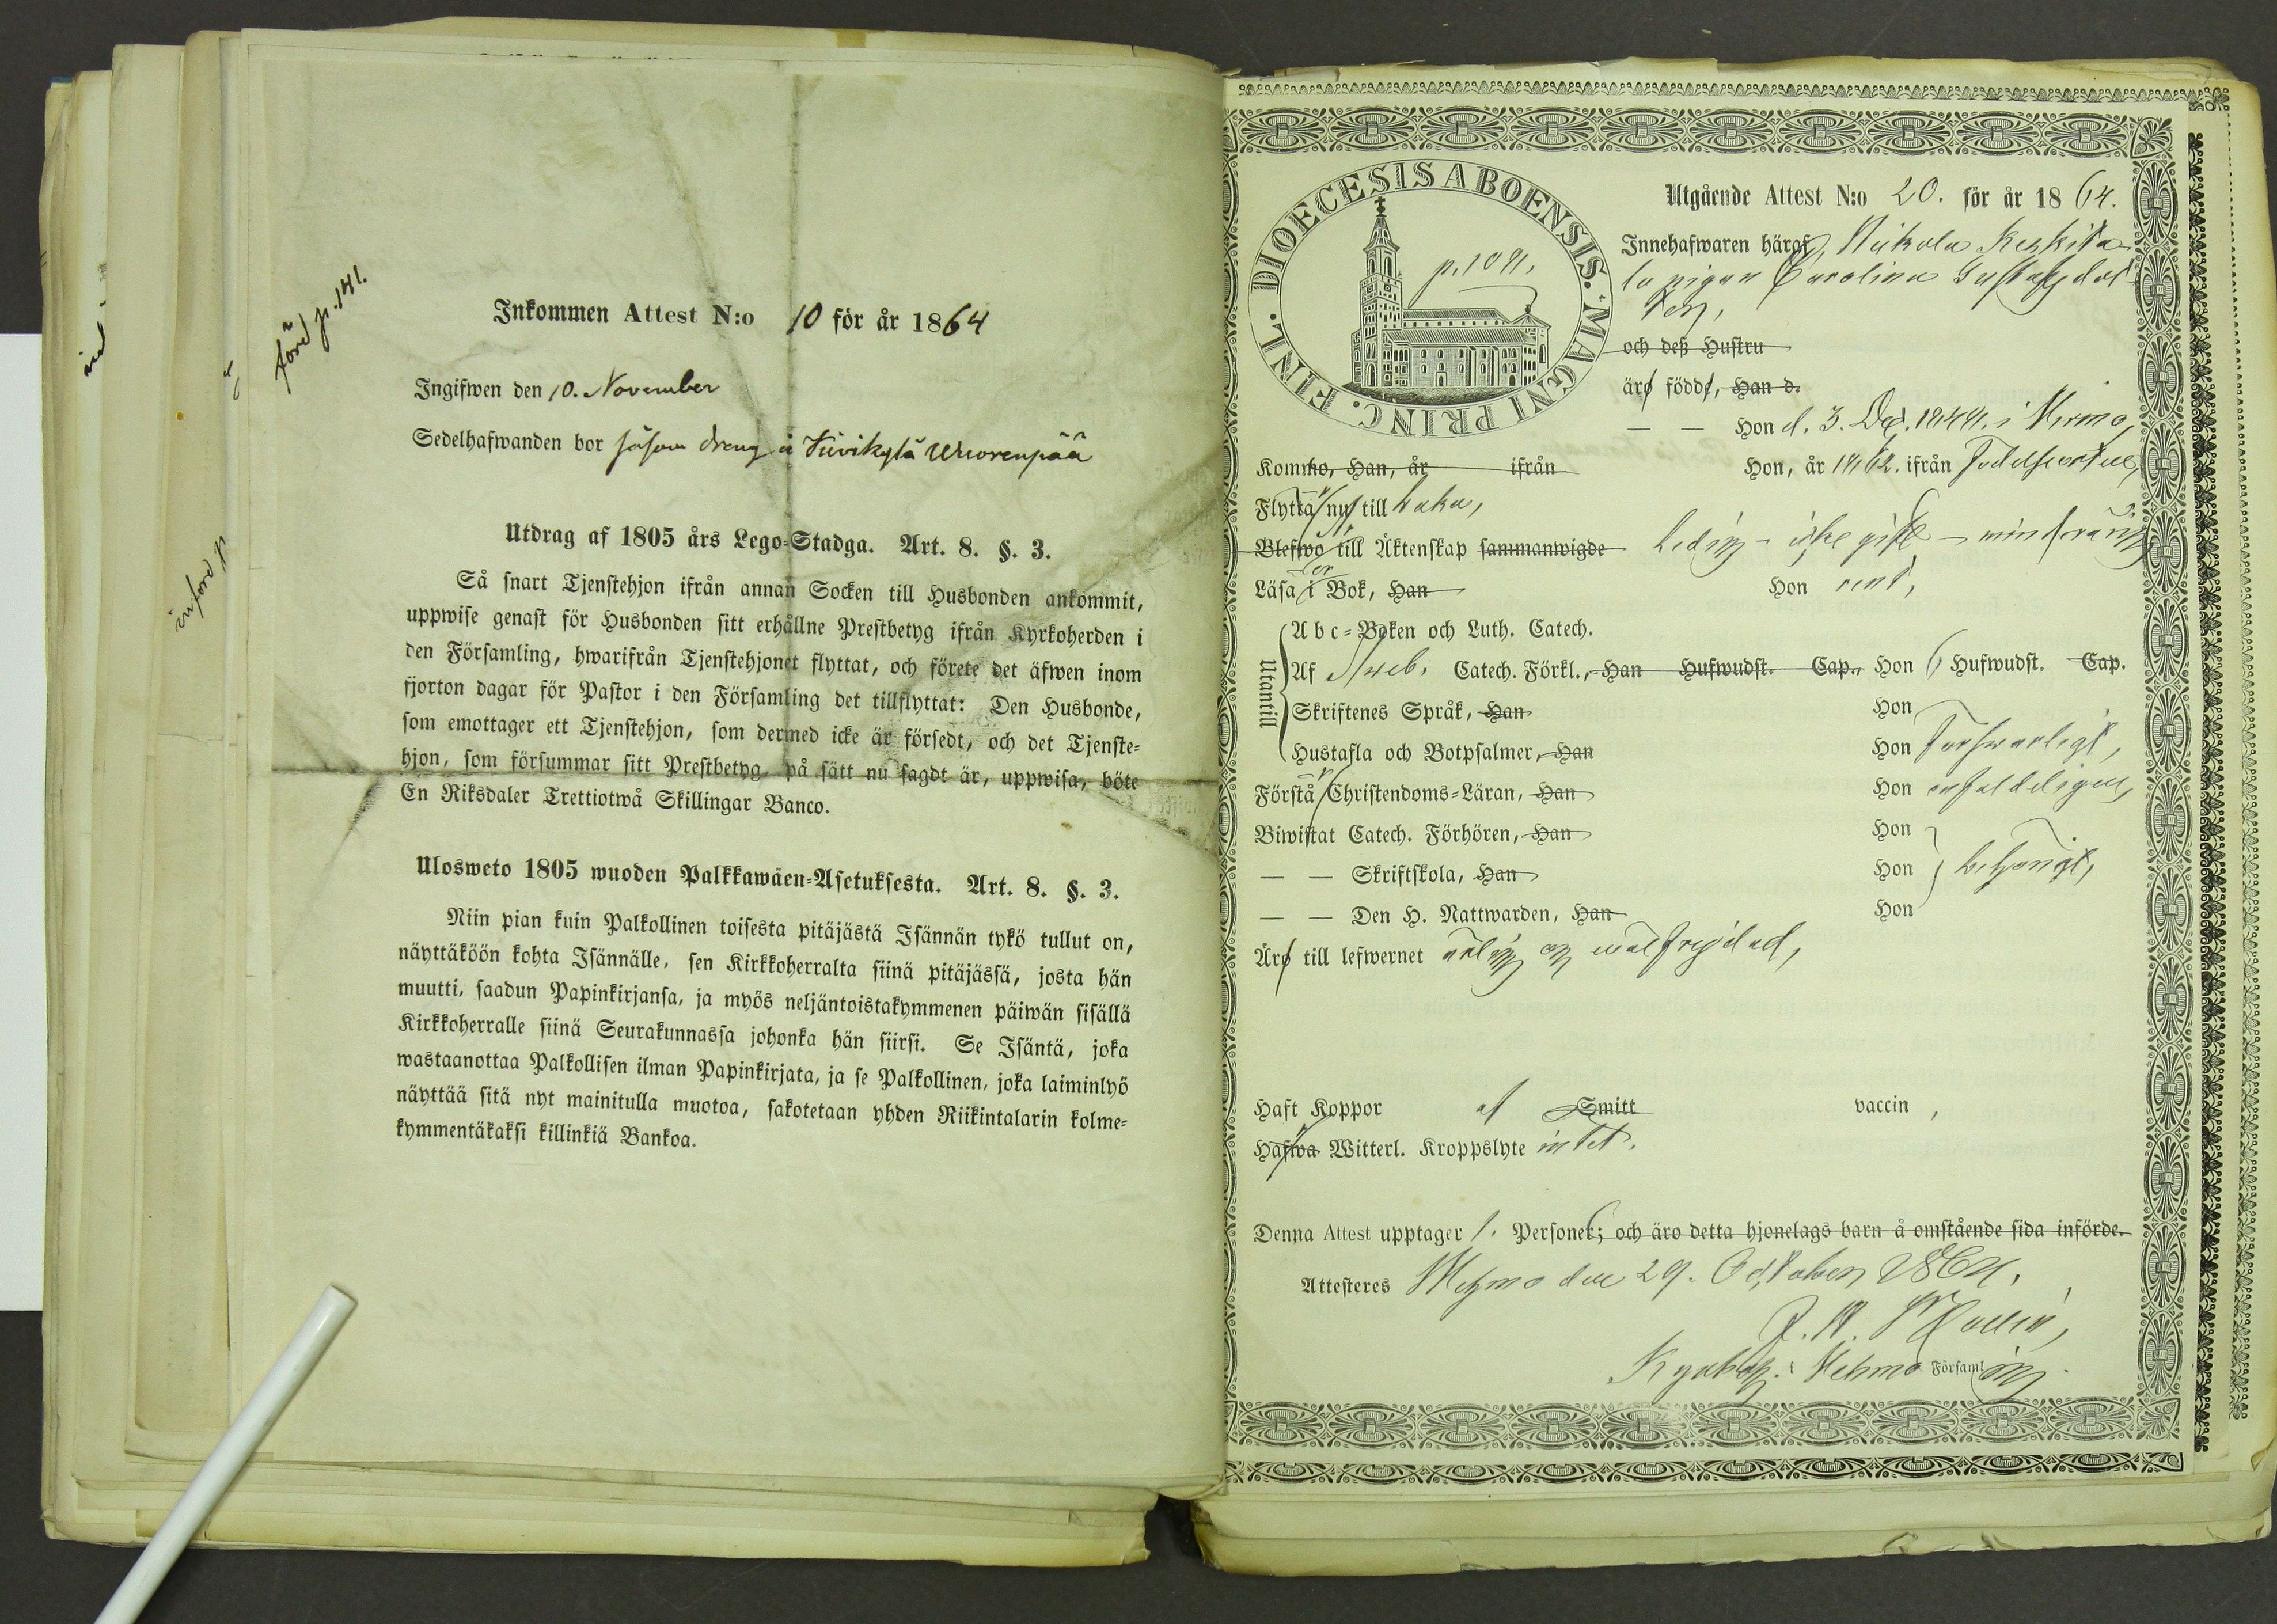 förd p. 141.
införd p
Inkommen Attest N:o 10 för år 1864
Ingifwen den 10. November
Sedelhafwanden bor såsom dreng å Viivikylä Wuorenpää
Utdrag af 1805 års Lego-Stadga. Art. 8. §. 3.
Så snart Tjenstehjon ifrån annan Socken till Husbonden ankommit,
uppwise genast för Husbonden sitt erhållne Prestbetyg ifrån Kyrkoherden i
den Församling, hwarifrån Tjenstehjonet flyttat, och förete det äfwen inom
fjorton dagar för Pastor i den Församling det tillflyttat: Den Husbonde,
som emottager ett Tjenstehjon, som dermed icke är försedt, och det Tjenste-
hjon, som försummar sitt Prestbetyg, på sätt nu sagdt är, uppwisa, böte
En Riksdaler Trettiotwå Skillingar Banco.
Ulosweto 1805 wuoden Palkkawäen-Asetuksesta. Art. 8. §. 3.
Niin pian kuin Palkollinen toisesta pitäjästä Isännän tykö tullut on,
näyttäköön kohta Isännälle, sen Kirkkoherralta siinä pitäjässä, josta hän
muutti, saadun Papinkirjansa, ja myös neljäntoistakymmenen päiwän sisällä
Kirkkoherralle siinä Seurakunnassa johonka hän siirsi. Se Isäntä, joka
wastaanottaa Palkollisen ilman Papinkirjata, ja se Palkollinen, joka laiminlyö
näyttää sitä nyt mainitulla muotoa, sakotetaan yhden Riikintalarin kolme-
kymmentäkaksi killinkiä Bankoa.
DIOECESIS ABOENSIS. MAGNI PRINC. FINL.
p. 101.
Utgående Attest N:o 20. för år 1864.
Innehafwaren häraf, Nikola Keskita-
lo pigan Carolina Gustafsdot-
ter,
och deß Hustru
äro födde, Han d.
— — Hon d. 3. Dec. 1844. i Virmo,
Kommo, Han, år ifrån Hon, år 1862. ifrån Födelseorten,
Flytta nu till
Blefwo till Äktenskap sammanwigde Ledig - icke gift - minderårig
Läsa i Bok, Han Hon rent,
Utantill
Abc-Boken och Luth. Catech.
Af Sveb. Catech. Förkl., Han Hufwudst. Cap., Hon 6 Hufwudst. Cap.
Skriftenes Språk, Han Hon
Hustafla och Botpsalmer, Han Hon Försvarligt,
Förstå Christendoms-Läran, Han Hon enfaldeligen,
Biwistat Catech. Förhören, Han Hon
— — Skriftskola, Han Hon behörigt,
— — Den H. Nattwarden, Han Hon
Äro till lefwernet ärlig och wälfrejdad,
Haft Koppor af Smitt vaccin,
Hafwa Witterl. Kroppslyte intet.
Denna Attest upptager 1. Personer; och äro detta hjonelags barn å omstående sida införde.
Attesteres Wehmo den 29. October 1864.
Kyrkoh. i Wehmo Församling